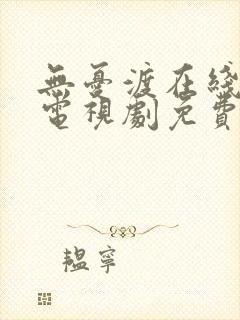 無憂渡在綫
電視劇免費
韞寧